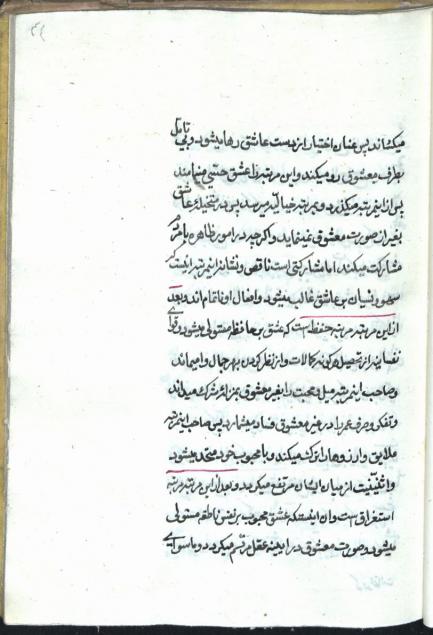 میکشاند پس عنان اختیار از دست عاشق رها میشود و بی تامل
بطرف معشوق رو میکند و این مرتبه را عشق حسی مینامند
پس از اینمرتبه میگذرد و بمرتبه خیالیه میرسد پس در متخیله عاشق
بغیر از صورت معشوق نمینماید و اگرچه در امور ظاهره با مردم
مشارکت میکند اما مشارکتی است ناقص و نشانه اینمرتبه اینست که
سهو و نسیان بر عاشق غالب میشود و افعال او ناتمام اند و بعد
از این مرتبه مرتبه حفظ است که عشق بر حافظه مستولی میشود و قوای
نفسانیه از تحصیل هرگونه کمالات و از نظر کردن بهر جمال وامیماند
و صاحب اینمرتبه میل و محبت را بغیر معشوق بمنزله شرک میداند
و تفکر و صرف عمر را در غیر معشوق فساد میشمارد پس صاحب اینمرتبه
علایق و ارزوها را ترک میکند و با محبوب خود متحد میشود
و اثنینیت از میان ایشان مرتفع میگردد و بعد از این مرتبه مرتبه
استغراق است و ان اینستکه عشق محبوب بر نفس ناطقه مستولی
میشود و صورت معشوق در ایینه عقل مرتسم میگردد و ماسوای